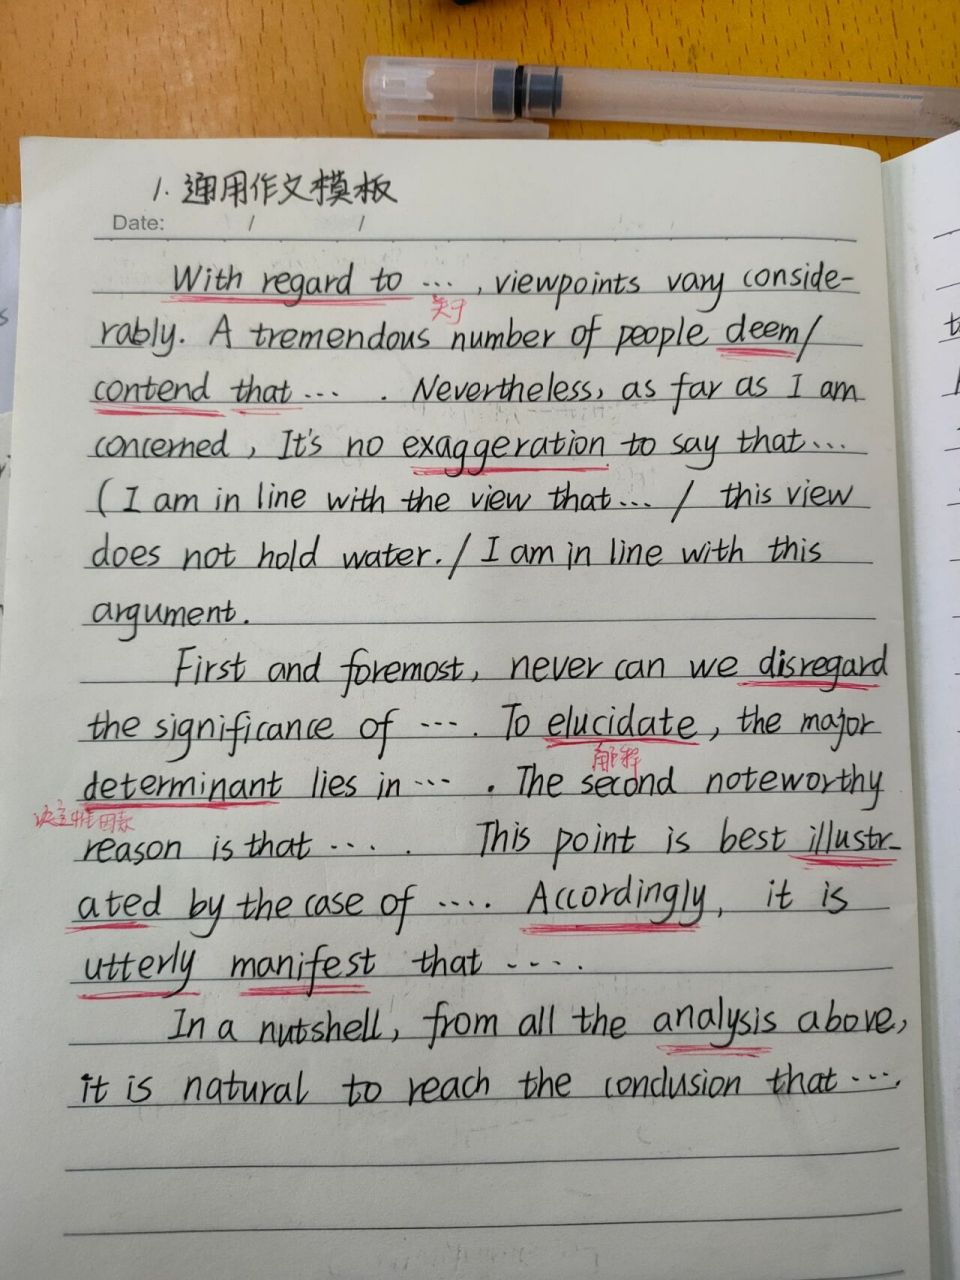 1. 通用作文模板
Date: / /
With regard to ..., viewpoints vary conside-
关于
rably. A tremendous number of people deem/
contend that ... . Nevertheless, as far as I am
concerned, It's no exaggeration to say that...
(I am in line with the view that... / this view
does not hold water. / I am in line with this
argument.
First and foremost, never can we disregard
the significance of .... To elucidate, the major
解释
determinant lies in ... . The second noteworthy
决定性因素
reason is that .... . This point is best illustr-
ated by the case of .... Accordingly, it is
utterly manifest that ....
In a nutshell, from all the analysis above,
it is natural to reach the conclusion that ....